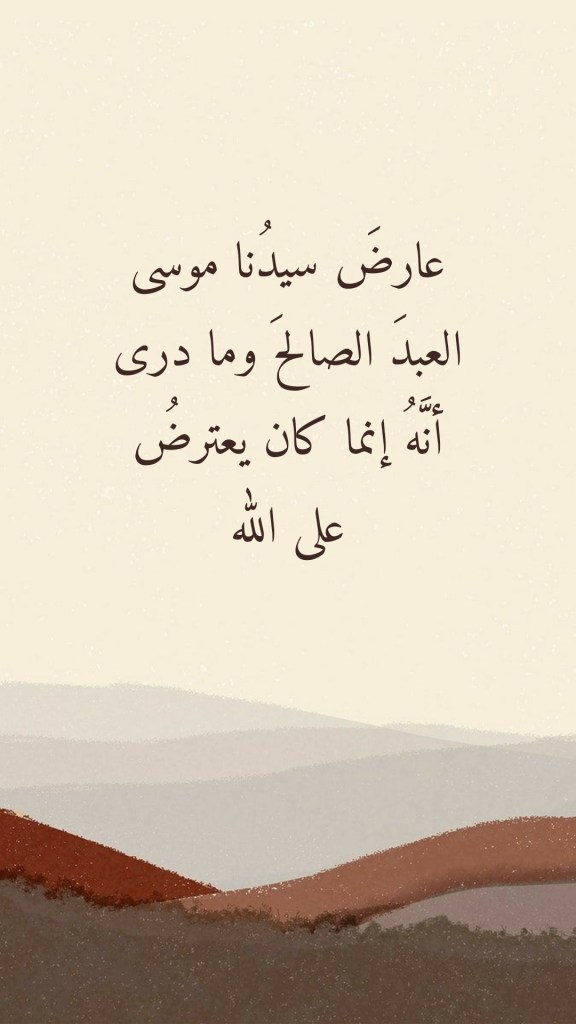 عارضَ سيدُنا موسى
العبدَ الصالحَ وما درى
أنَّهُ إنما كان يعترضُ
على الله